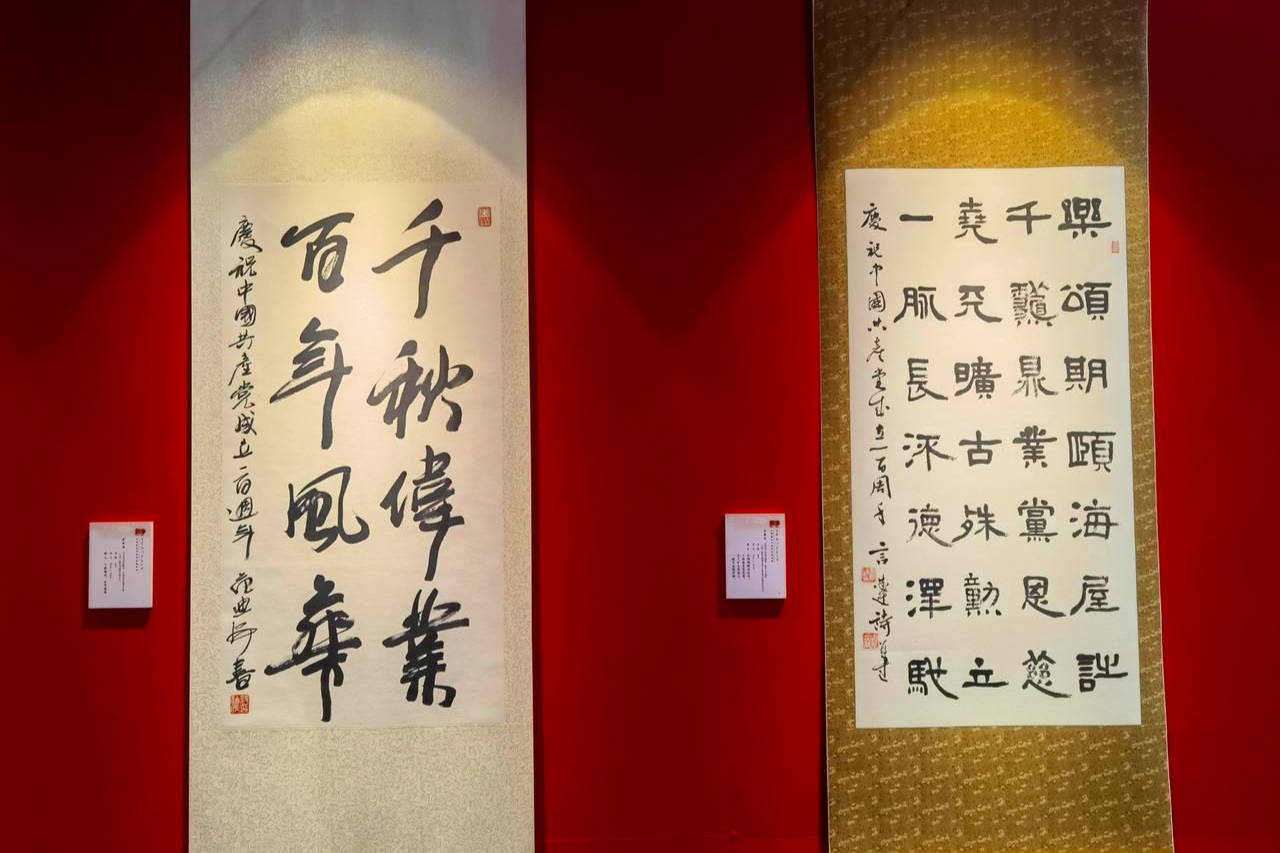 千秋偉業
百年風華
慶祝中國共產党成立一百週年
樂頌期頤海屋詩
千龝鼎業黨恩慈
堯天曠古殊勳立
一脈長流德澤馳
慶祝中國共產党成立一百周年 言恭達詩